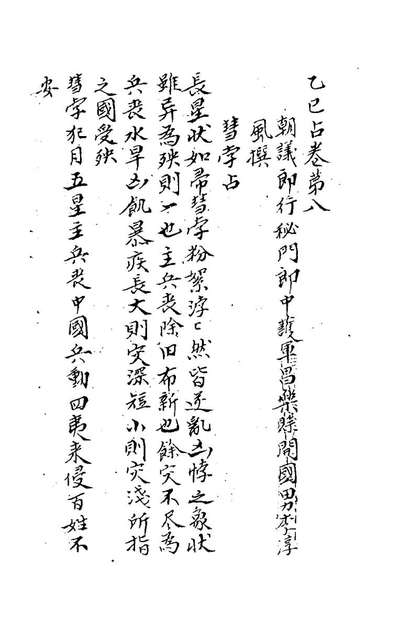 乙巳占卷第八
朝議郎行秘閣郎中護軍昌樂縣開國男李淳
風撰
彗孛占
長星狀如帚彗孛粉絮浡〻然皆逆亂凶悖之象狀
雖异為殃則一也主兵喪除旧布新也餘灾不尽為
兵喪水旱凶飢暴疾長大則灾深短小則灾淺所指
之國受殃
彗孛犯月五星主兵喪中國兵動四夷来侵百姓不
安